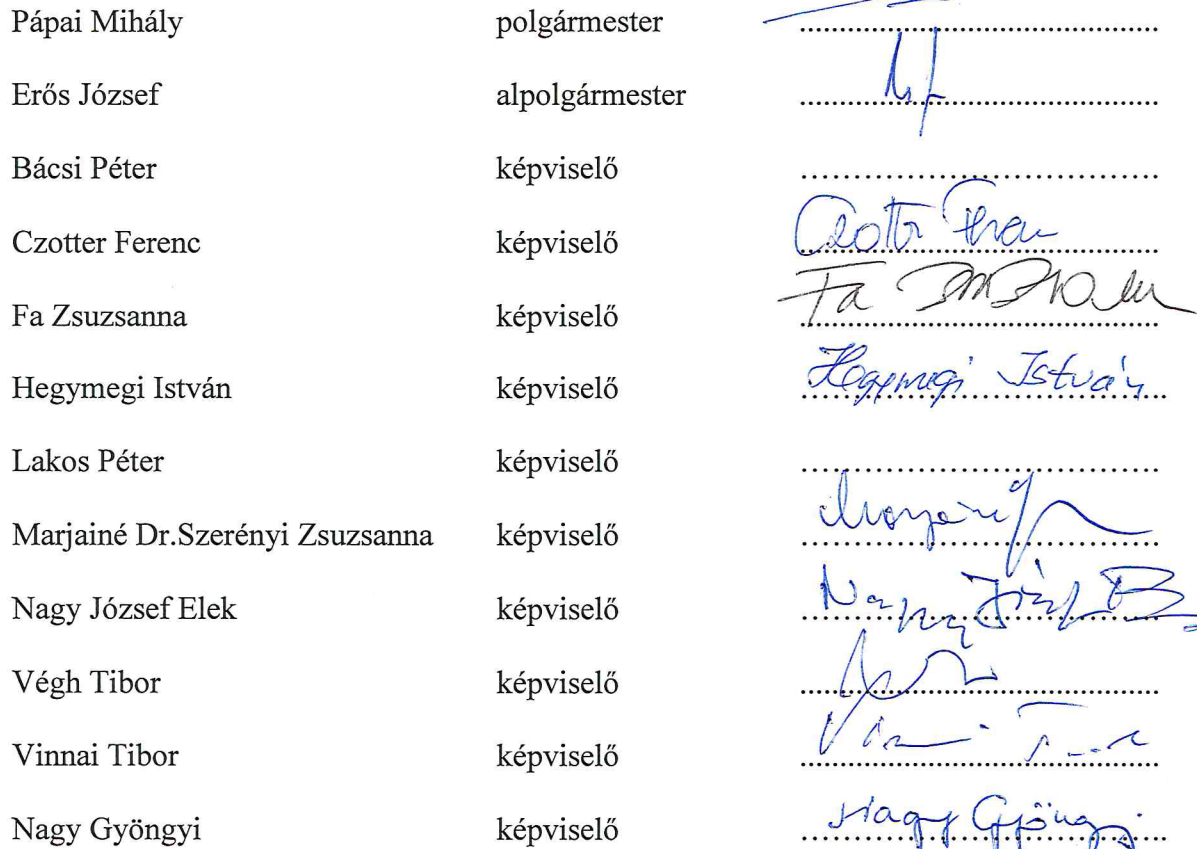 Pápai Mihály polgármester
Erős József alpolgármester
Bácsi Péter képviselő
Czotter Ferenc képviselő Czotter Ferenc
Fa Zsuzsanna képviselő Fa Zsuzsanna
Hegymegi István képviselő Hegymegi István
Lakos Péter képviselő
Marjainé Dr.Szerényi Zsuzsanna képviselő
Nagy József Elek képviselő Nagy József
Végh Tibor képviselő
Vinnai Tibor képviselő
Nagy Gyöngyi képviselő Nagy Gyöngyi